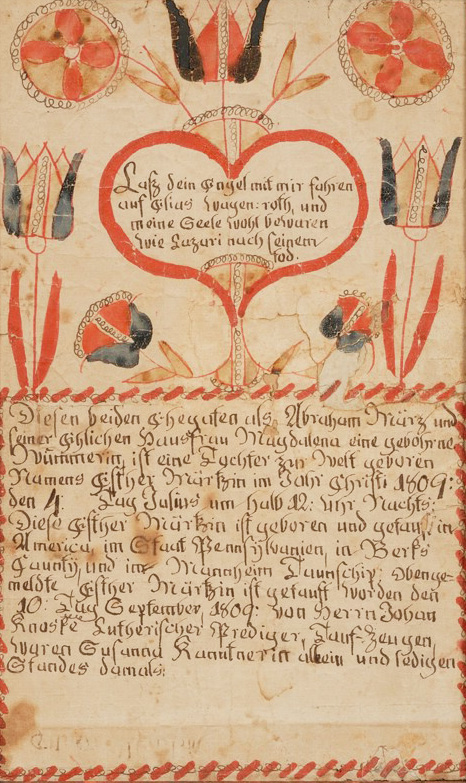 Laß dein Engel mit mir fahren
auf Elias Wagen: roth, und
meine Seele wohl bewaren
wie Lazari nach seinem
tod.
Diesen beiden Ehegatten als, Abraham Märtz und
seiner Ehlichen Hausfrau Magdalena eine gebohrne
ist eine Tochter zur Welt geboren
Namens Esther Märtzin im Jahr Christi 1809:
den 4. Tag Julius um halb 12: uhr Nachts:
Diese Esther Märtzin ist geboren und getauft in
America, im Staat Pennsylvanien, in Berks
Caunty, und im Mannheim Taunschip, obenge-
meldte Esther Märtzin ist getauft worden den
10: Tag September, 1809: von Herrn Johan
Lutherischer Prediger, Tauf-Zeugen,
waren Susanna allein und ledigen
Standes damals: